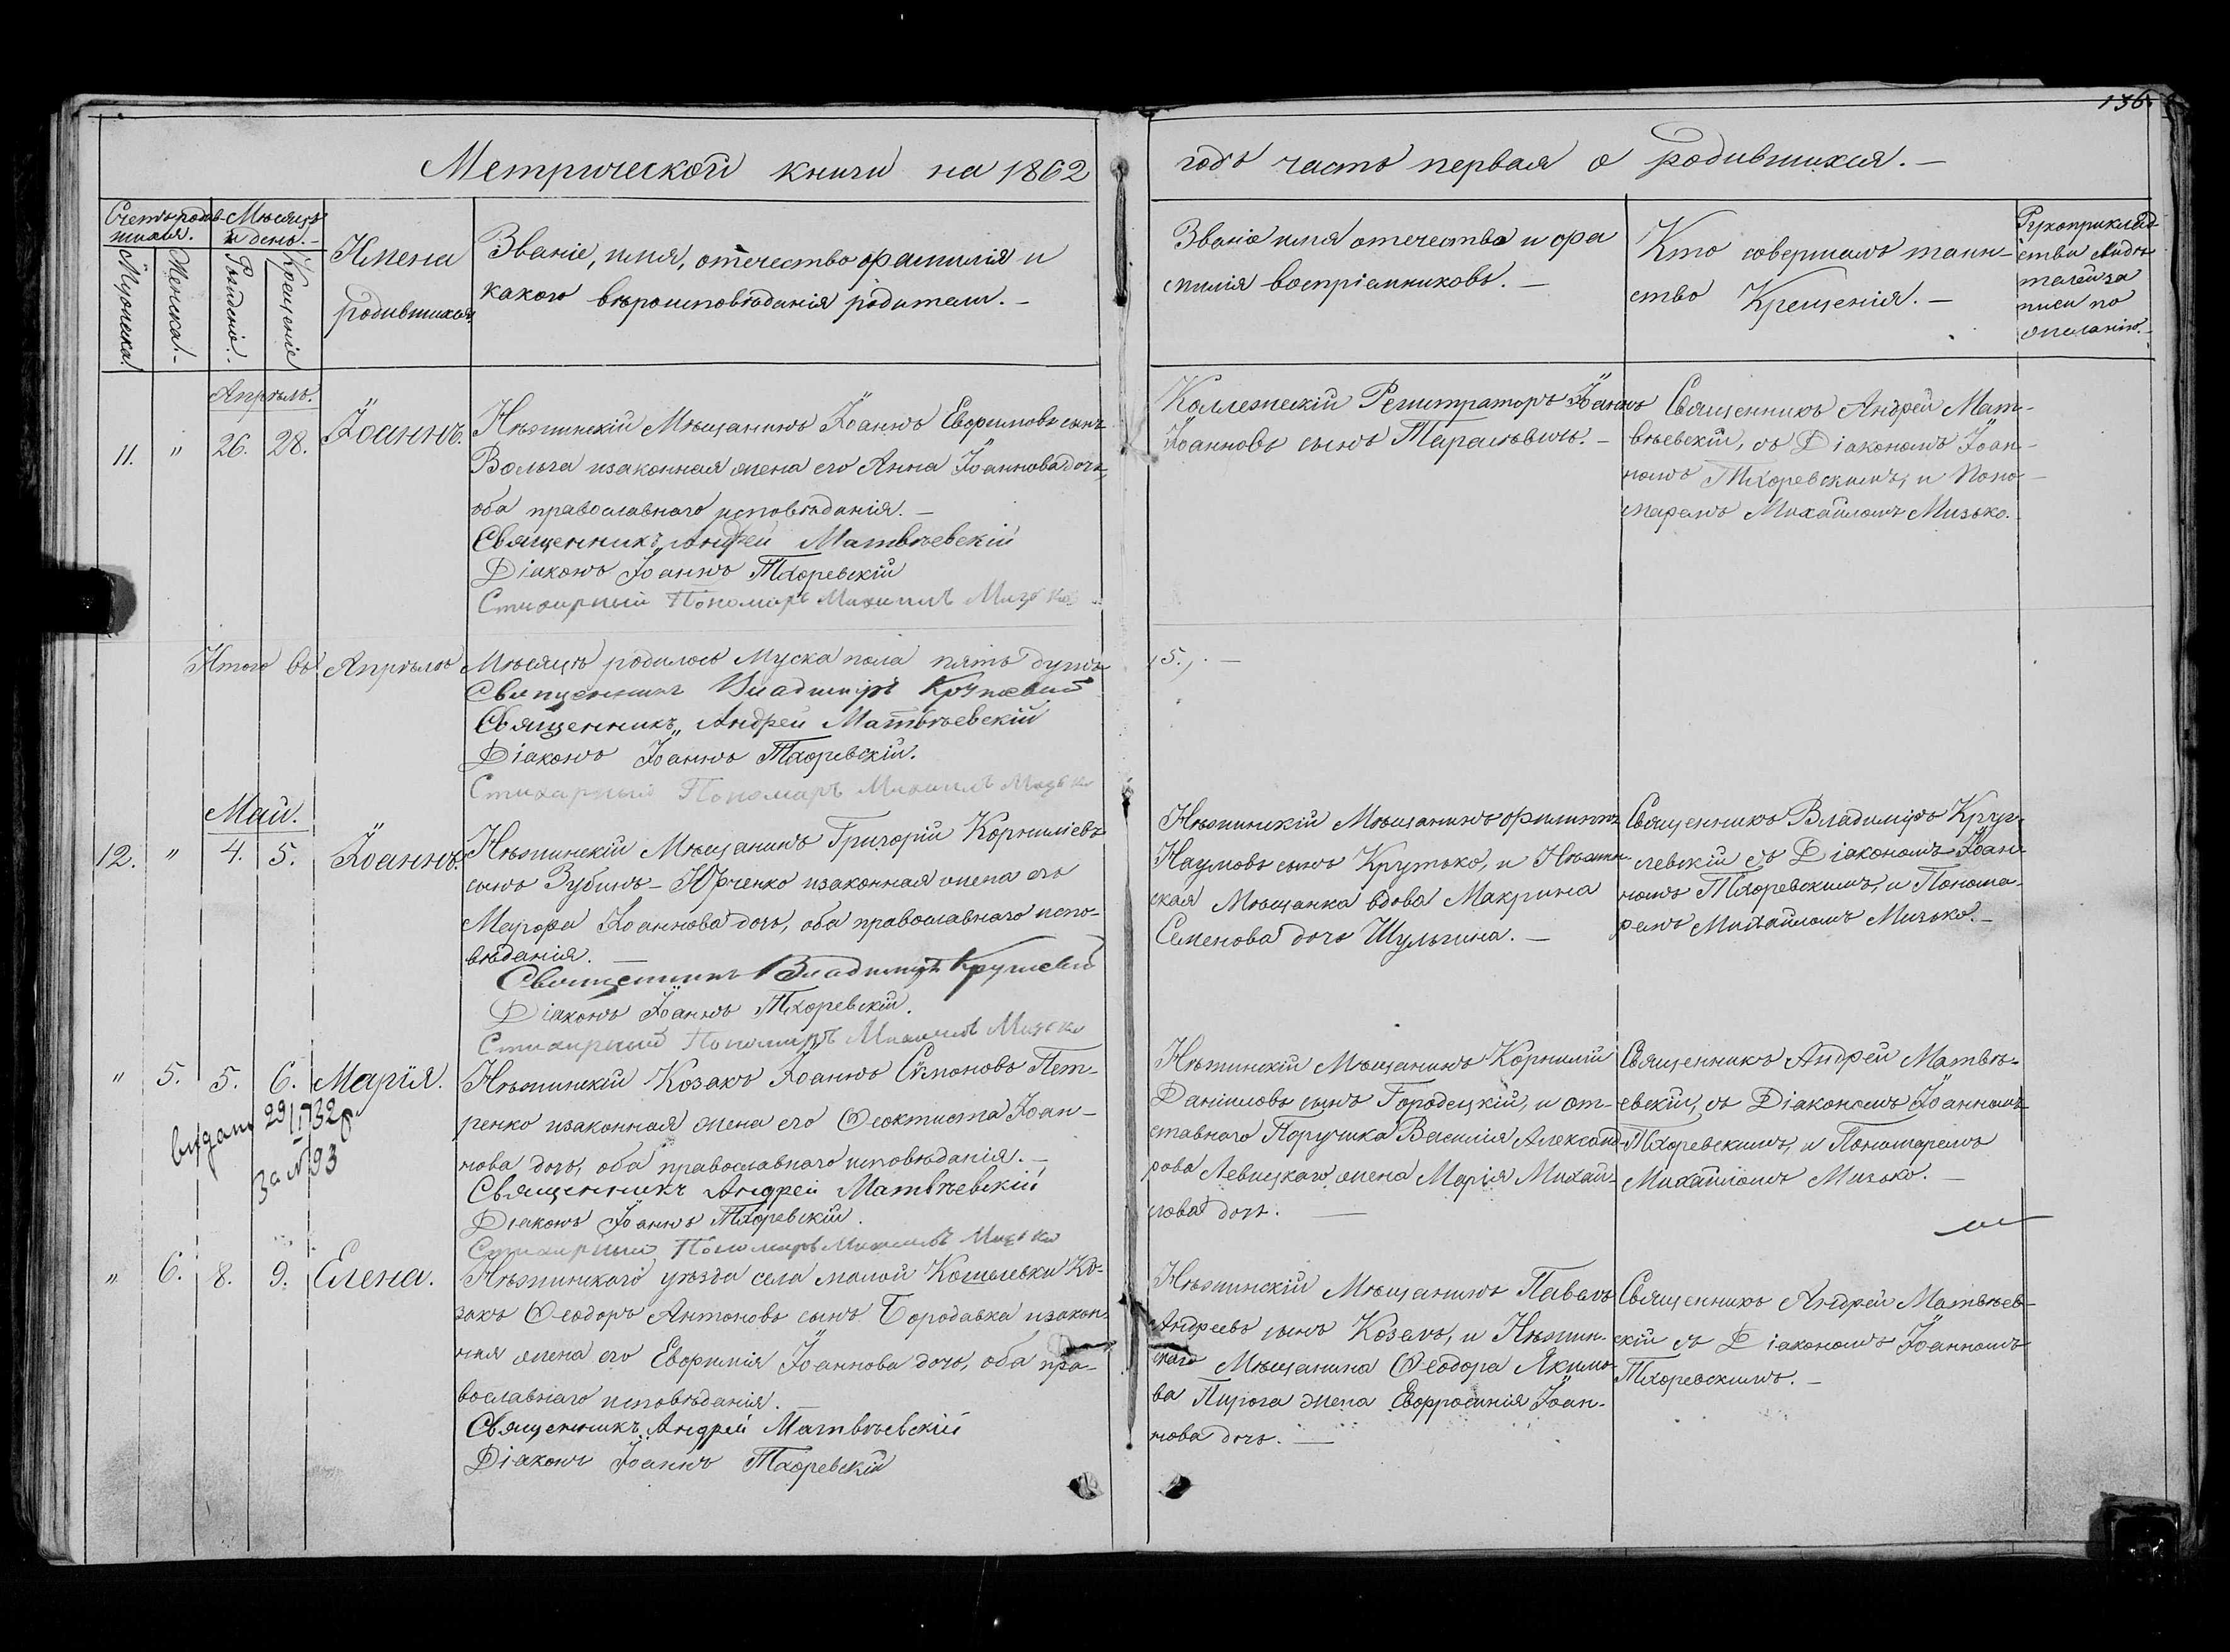 136.
Метрической книги на 1862
годъ часть первая о родившихся. —
Счетъ родив-
шихся.
Мѣсяцъ
и день. —
Мужеска.
Женска. —
Рожденіе. —
Крещеніе
Имена
родившихся
Званіе, имя, отечество фамилія и
какого вѣроисповѣданія родители. —
Званіе имя отечество и фа
милія воспріемниковъ. —
Кто совершалъ таин-
ство Крещенія. —
Рукоприклад
ство свидѣ
телей за
писи по
желанію. —
Апрѣль.
11. " 26. 28. Іоаннъ.
Нѣжинскій Мѣщанинъ Іоаннъ Евфимовъ сынъ
Вольга и законная жена его Анна Іоаннова дочь,
оба православнаго исповѣданія. —
Священникъ Андрей Матвѣевскій
Діаконъ Іоаннъ Тхоревскій
Стихарный Пономарь Михаилъ Мизько
Коллежскій Регистраторъ Іоаннъ
Іоанновъ сынъ Тарасѣвичъ. —
Священникъ Андрей Мат-
вѣевскій, съ Діакономъ Іоан-
номъ Тхоревскимъ, и Поно-
маремъ Михайломъ Мизько.
Итого въ Апрѣлѣ Мѣсяцѣ родилось Муска пола пять душъ
5. —
Священникъ Владимиръ
Священникъ Андрей Матвѣевскій
Діаконъ Іоаннъ Тхоревскій.
Стихарный Пономарь Михаилъ Мизько
Май.
12. " 4. 5. Іоаннъ.
Нѣжинскій Мѣщанинъ Григорій Корниліевъ
сынъ Зубинъ-Юрченко и законная жена его
Марфа Іоаннова дочь, оба православнаго испо-
вѣданія. —
Священникъ Владимиръ
Діаконъ Іоаннъ Тхоревскій.
Стихарный Пономарь Михаилъ Мизько
Нѣжинскій Мѣщанинъ Филиппъ
Наумовъ сынъ Крутько, и Нѣжин-
ская Мѣщанка вдова Макрина
Семенова дочь Шульгина. —
Священникъ Владимиръ
съ Діакономъ Іоан-
номъ Тхоревскимъ, и Понома-
ремъ Михайломъ Мизько. —
" 5. 5. 6. Марія.
выдано 29/I 32
За № 93
Нѣжинскій Козакъ Іоаннъ Симоновъ Пет-
ренко и законная жена его Феоктиста Іоан-
нова дочь, оба православнаго исповѣданія. —
Священникъ Андрей Матвѣевскій
Діаконъ Іоаннъ Тхоревскій.
Стихарный Пономарь Михаилъ Мизько
Нѣжинскій Мѣщанинъ Корнилій
Даниловъ сынъ Городецкій, и от-
ставного Поручика Василія Александ-
рова Левицкаго жена Марія Михай-
лова дочь. —
Священникъ Андрей Матвѣ-
евскій, съ Діакономъ Іоанномъ
Тхоревскимъ, и Пономаремъ
Михайломъ Мизько. —
" 6. 8. 9. Елена.
Нѣжинскаго уѣзда села малой Кошелевки Ко-
закъ Феодоръ Антоновъ сынъ Бородавка и закон-
ная жена его Евфимія Іоаннова дочь, оба пра-
вославнаго исповѣданія. —
Священникъ Андрей Матвѣевскій
Діаконъ Іоаннъ Тхоревскій
Нѣжинскій Мѣщанинъ Павелъ
Андреевъ сынъ Козелъ, и Нѣжин-
скаго Мѣщанина Феодора Якимо-
ва Пирога жена Евфросинія Іоан-
нова дочь. —
Священникъ Андрей Матвѣев-
скій съ Діакономъ Іоанномъ
Тхоревскимъ. —